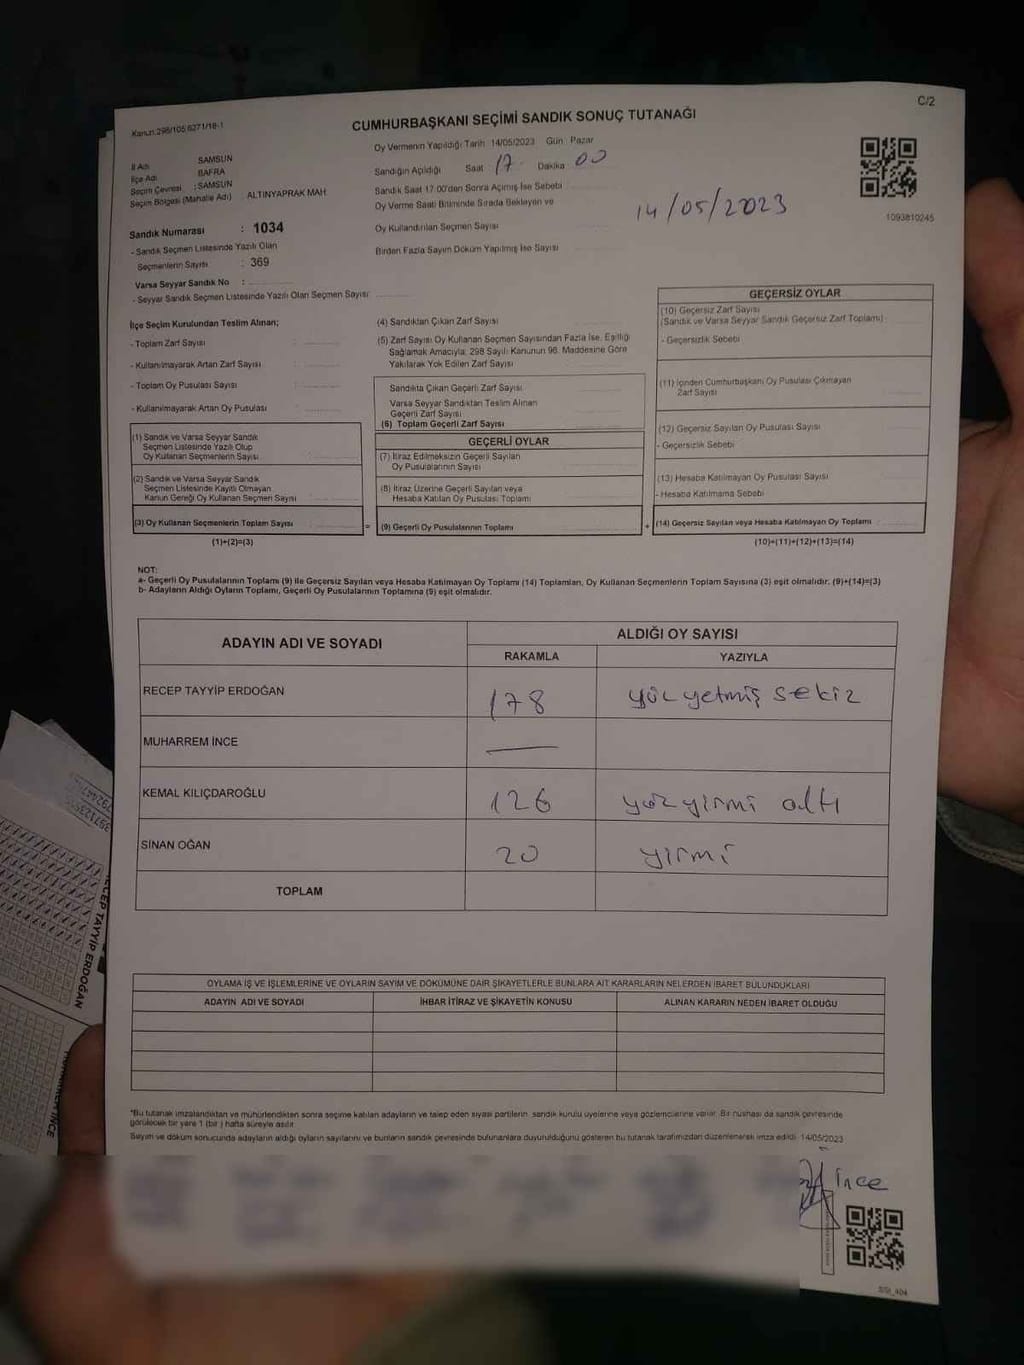 C/2
Kanun:298/105,6271/18-1
CUMHURBAŞKANI SEÇİMİ SANDIK SONUÇ TUTANAĞI
Oy Vermenin Yapıldığı Tarih 14/05/2023 Gün Pazar
İl Adı SAMSUN
İlçe Adı BAFRA
Seçim Çevresi : SAMSUN
Seçim Bölgesi (Mahalle Adı) ALTINYAPRAK MAH
Sandığın Açıldığı Saat 17 Dakika 00
Sandık Saat 17.00'den Sonra Açılmış İse Sebebi
Oy Verme Saati Bitiminde Sırada Bekleyen ve
Oy Kullandırılan Seçmen Sayısı
Birden Fazla Sayım Döküm Yapılmış İse Sayısı
14/05/2023
1093810245
Sandık Numarası : 1034
- Sandık Seçmen Listesinde Yazılı Olan
Seçmenlerin Sayısı : 369
Varsa Seyyar Sandık No :
- Seyyar Sandık Seçmen Listesinde Yazılı Olan Seçmen Sayısı
İlçe Seçim Kurulundan Teslim Alınan;
- Toplam Zarf Sayısı :
- Kullanılmayarak Artan Zarf Sayısı :
- Toplam Oy Pusulası Sayısı :
- Kullanılmayarak Artan Oy Pusulası :
(1) Sandık ve Varsa Seyyar Sandık
Seçmen Listesinde Yazılı Olup
Oy Kullanan Seçmenlerin Sayısı :
(2) Sandık ve Varsa Seyyar Sandık
Seçmen Listesinde Kayıtlı Olmayan
Kanun Gereği Oy Kullanan Seçmen Sayısı :
(3) Oy Kullanan Seçmenlerin Toplam Sayısı :
(1)+(2)=(3)
(4) Sandıktan Çıkan Zarf Sayısı
(5) Zarf Sayısı Oy Kullanan Seçmen Sayısından Fazla İse, Eşitliği
Sağlamak Amacıyla, 298 Sayılı Kanunun 98. Maddesine Göre
Yakılarak Yok Edilen Zarf Sayısı
Sandıkta Çıkan Geçerli Zarf Sayısı
Varsa Seyyar Sandıktan Teslim Alınan
Geçerli Zarf Sayısı
(6) Toplam Geçerli Zarf Sayısı
GEÇERLİ OYLAR
(7) İtiraz Edilmeksizin Geçerli Sayılan
Oy Pusulalarının Sayısı
(8) İtiraz Üzerine Geçerli Sayılan veya
Hesaba Katılan Oy Pusulası Toplamı
= (9) Geçerli Oy Pusulalarının Toplamı
GEÇERSİZ OYLAR
(10) Geçersiz Zarf Sayısı
(Sandık ve Varsa Seyyar Sandık Geçersiz Zarf Toplamı)
- Geçersizlik Sebebi
(11) İçinden Cumhurbaşkanı Oy Pusulası Çıkmayan
Zarf Sayısı
(12) Geçersiz Sayılan Oy Pusulası Sayısı
- Geçersizlik Sebebi
(13) Hesaba Katılmayan Oy Pusulası Sayısı
- Hesaba Katılmama Sebebi
+ (14) Geçersiz Sayılan veya Hesaba Katılmayan Oy Toplamı
(10)+(11)+(12)+(13)=(14)
NOT:
a- Geçerli Oy Pusulalarının Toplamı (9) ile Geçersiz Sayılan veya Hesaba Katılmayan Oy Toplamı (14) Toplamları, Oy Kullanan Seçmenlerin Toplam Sayısına (3) eşit olmalıdır. (9)+(14)=(3)
b- Adayların Aldığı Oyların Toplamı, Geçerli Oy Pusulalarının Toplamına (9) eşit olmalıdır.
ADAYIN ADI VE SOYADI
ALDIĞI OY SAYISI
RAKAMLA YAZIYLA
RECEP TAYYİP ERDOĞAN 178 yüz yetmiş sekiz
MUHARREM İNCE —
KEMAL KILIÇDAROĞLU 126 yüz yirmi altı
SİNAN OĞAN 20 yirmi
TOPLAM
OYLAMA İŞ VE İŞLEMLERİNE VE OYLARIN SAYIM VE DÖKÜMÜNE DAİR ŞİKAYETLERLE BUNLARA AİT KARARLARIN NELERDEN İBARET BULUNDUKLARI
ADAYIN ADI VE SOYADI İHBAR İTİRAZ VE ŞİKAYETİN KONUSU ALINAN KARARIN NEDEN İBARET OLDUĞU
*Bu tutanak imzalandıktan ve mühürlendikten sonra seçime katılan adayların ve talep eden siyasi partilerin sandık kurulu üyelerine veya gözlemcilerine verilir. Bir nüshası da sandık çevresinde
görülecek bir yere 1 (bir) hafta süreyle asılır.
Sayım ve döküm sonucunda adayların aldığı oyların sayılarını ve bunların sandık çevresinde bulunanlara duyurulduğunu gösteren bu tutanak tarafımızdan düzenlenerek imza edildi. 14/05/2023
İnce
SSI_404
RECEP TAYYİP ERDOĞAN